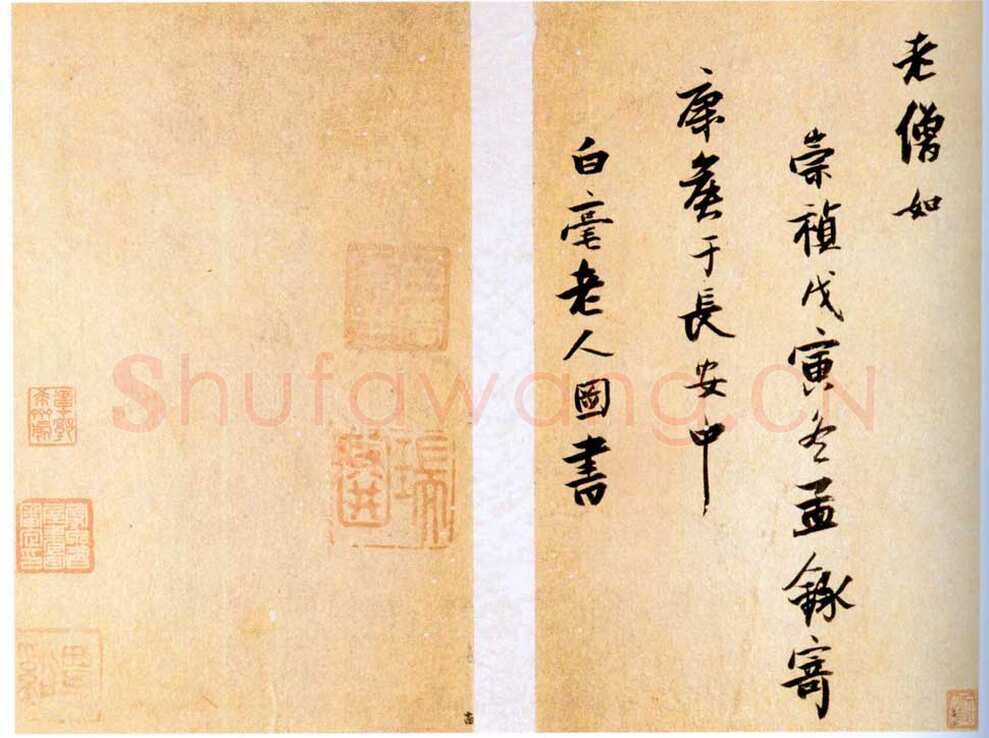 老僧如
崇禎戊寅冬孟錄寄
康侯于長安中
白毫老人圖書
Shufawang.CN